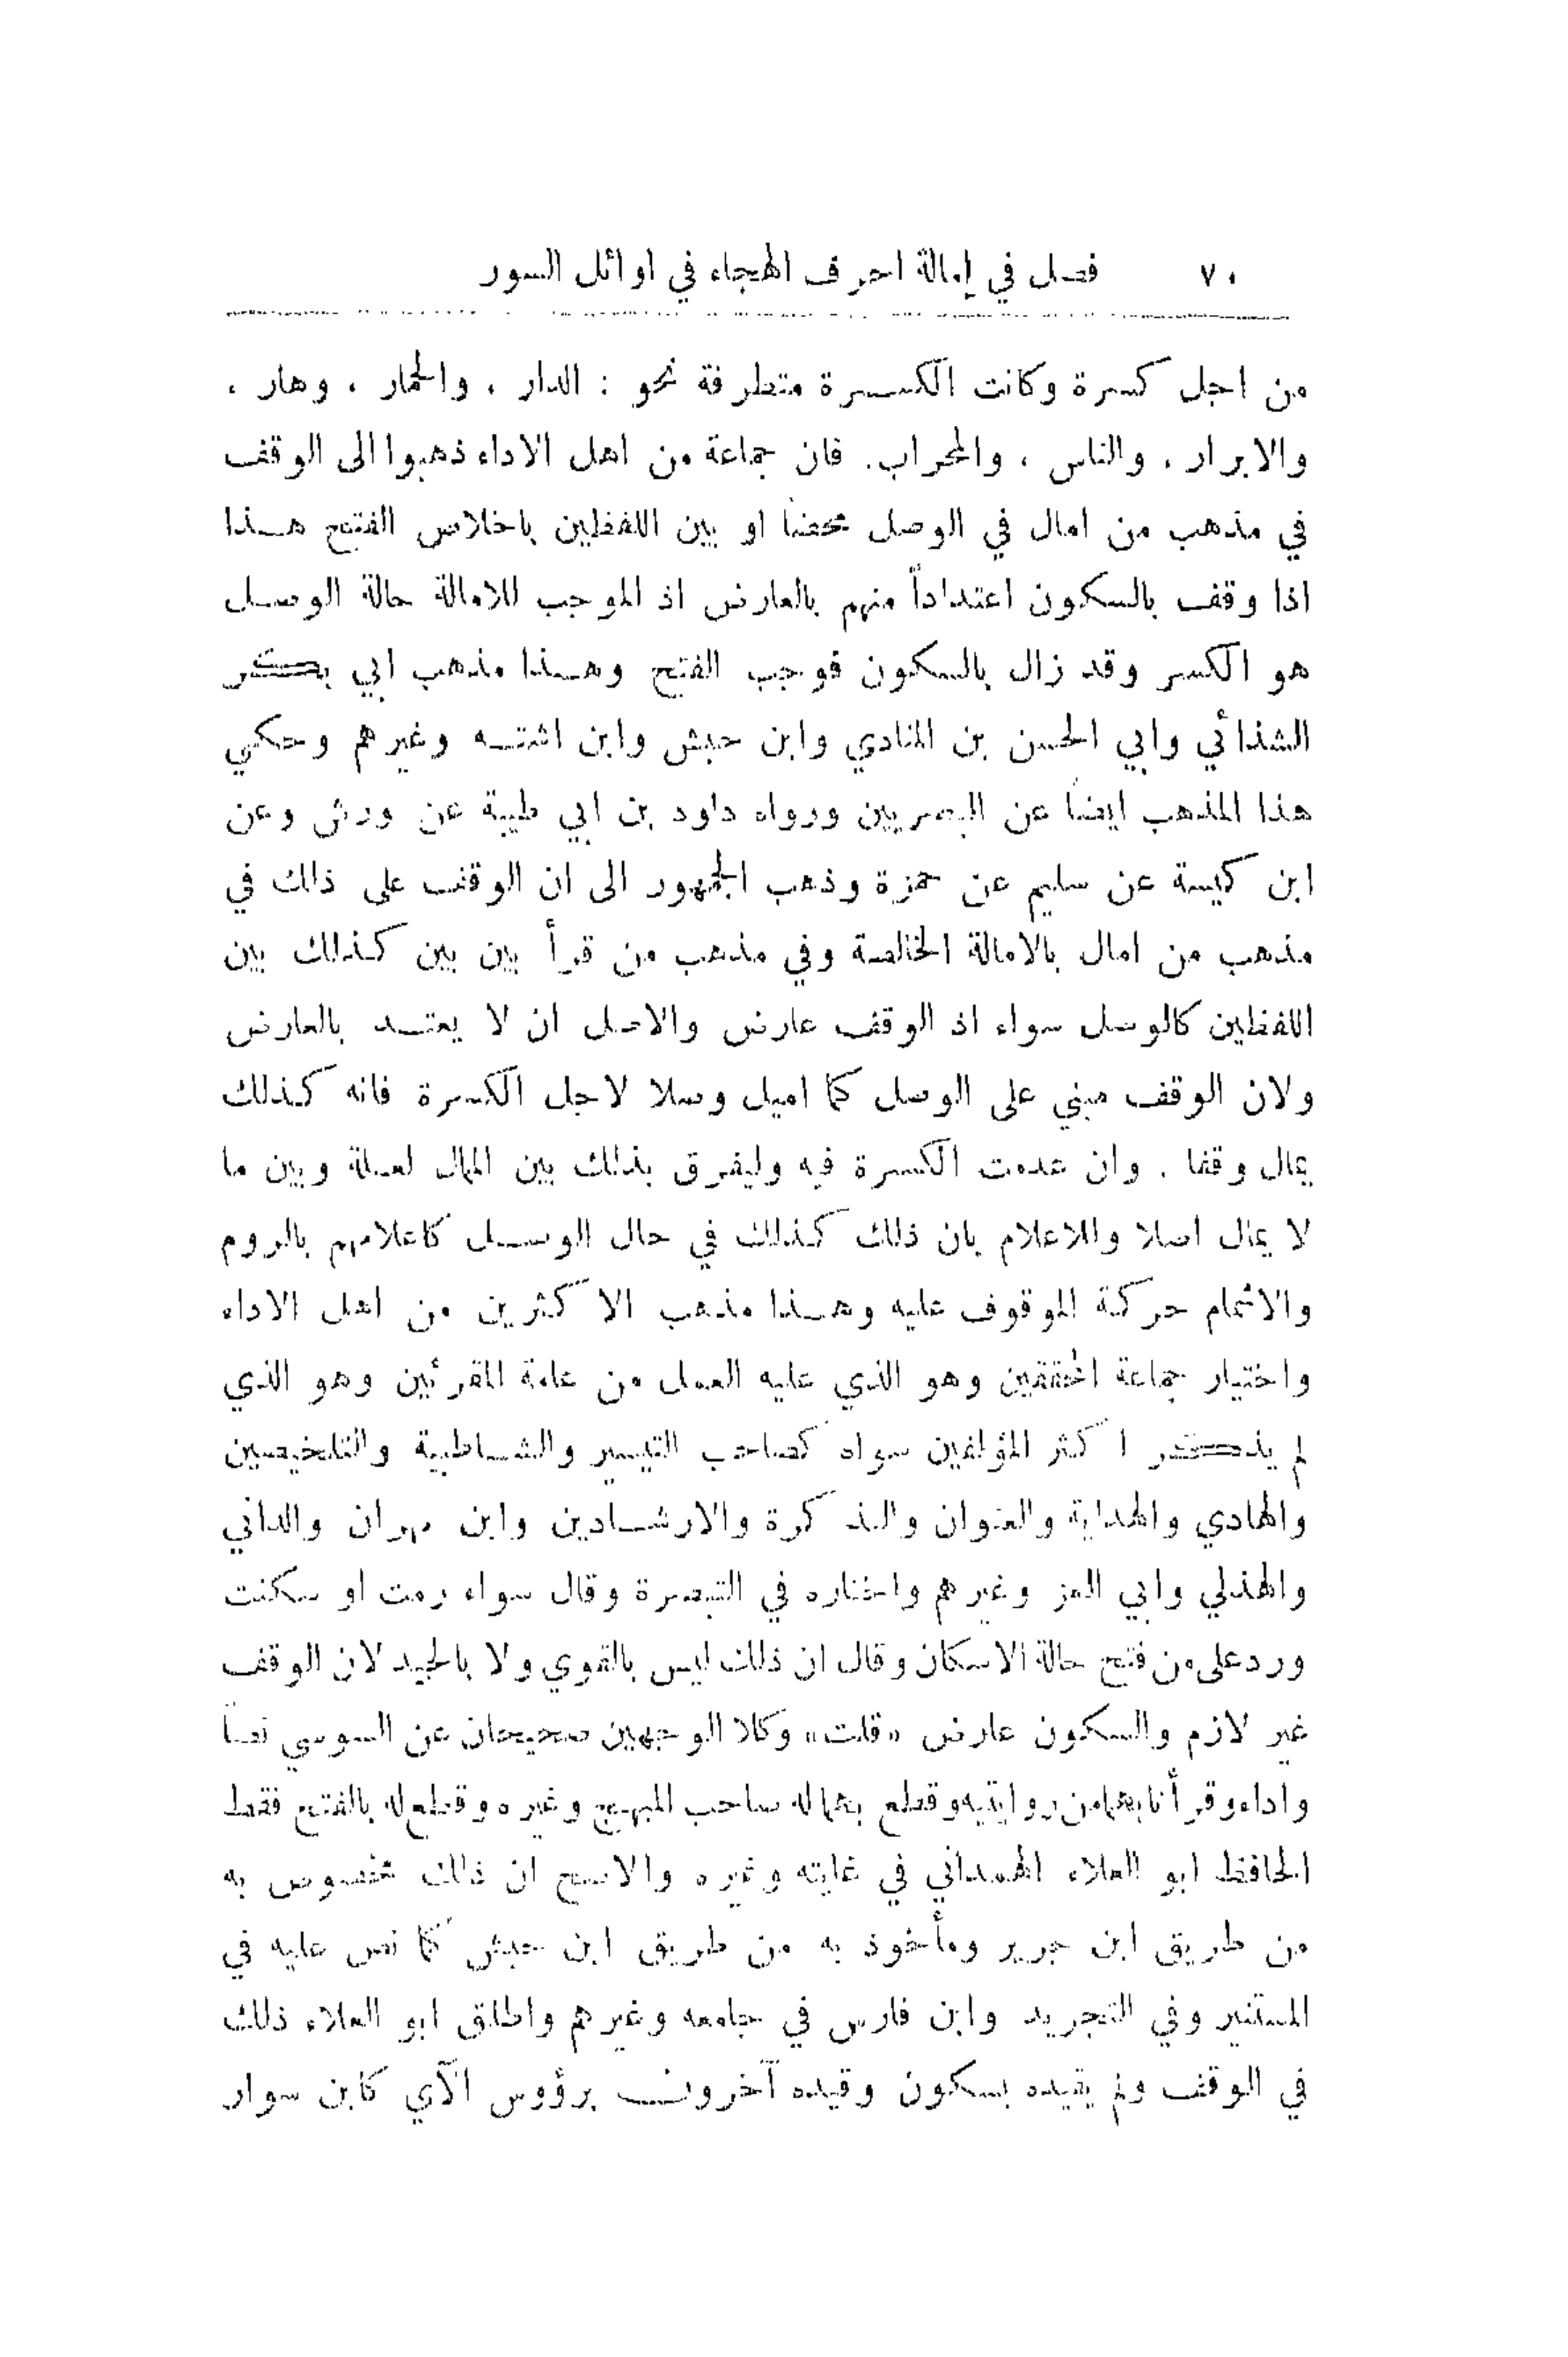 ٧٠ فصل في إمالة احرف الهجاء في اوائل السور
من اجل كسرة وكانت الكسرة متطرفة نحو : الدار ، والحمار ، وهار ،
والابرار ، والناس ، والمحراب. فان جماعة من اهل الاداء ذهبوا الى الوقف
في مذهب من امال في الوصل محضاً او بين اللفظين باخلاص الفتح هذا
اذا وقف بالسكون اعتداداً منهم بالعارض اذ الموجب للامالة حالة الوصل
هو الكسر وقد زال بالسكون فوجب الفتح وهذا مذهب ابي بكر
الشذائي وابي الحسن بن المنادي وابن حبش وابن اشته وغيرهم وحكي
هذا المذهب ايضاً عن البصريين ورواه داود بن ابي طيبة عن ورش وعن
ابن كيسة عن سليم عن حمزة وذهب الجمهور الى ان الوقف على ذلك في
مذهب من امال بالامالة الخالصة وفي مذهب من قرأ بين بين كذلك بين
اللفظين كالوصل سواء اذ الوقف عارض والاصل ان لا يعتد بالعارض
ولان الوقف مبني على الوصل كما اميل وصلا لاجل الكسرة فانه كذلك
يمال وقفا . وان عدمت الكسرة فيه وليفرق بذلك بين الممال لعلة وبين ما
لا يمال اصلا وللاعلام بان ذلك كذلك في حال الوصل كاعلامهم بالروم
والاشمام حركة الموقوف عليه وهذا مذهب الاكثرين من اهل الاداء
واختيار جماعة المحققين وهو الذي عليه العمل من عامة المقرئين وهو الذي
لم يذكر اكثر المؤلفين سواه كصاحب التيسير والشاطبية والتلخيصين
والهادي والهداية والعنوان والتذكرة والارشادين وابن مهران والداني
والهذلي وابي العز وغيرهم واختاره في التبصرة وقال سواء رمت او سكنت
ورد على من فتح حالة الاسكان وقال ان ذلك ليس بالقوي ولا بالجيد لان الوقف
غير لازم والسكون عارض «قلت» وكلا الوجهين صحيحان عن السوسي نصاً
واداء وقرأنا بهما من روايتيه وقطع بهما له صاحب المبهج وغيره وقطع له بالفتح فقط
الحافظ ابو العلاء الهمداني في غايته وغيره والاصح ان ذلك مخصوص به
من طريق ابن جرير ومأخوذ به من طريق ابن حبش كما نص عليه في
المستنير وفي التجريد وابن فارس في جامعه وغيرهم واطلق ابو العلاء ذلك
في الوقف ولم يقيده بسكون وقيده آخرون برؤوس الآي كابن سوار